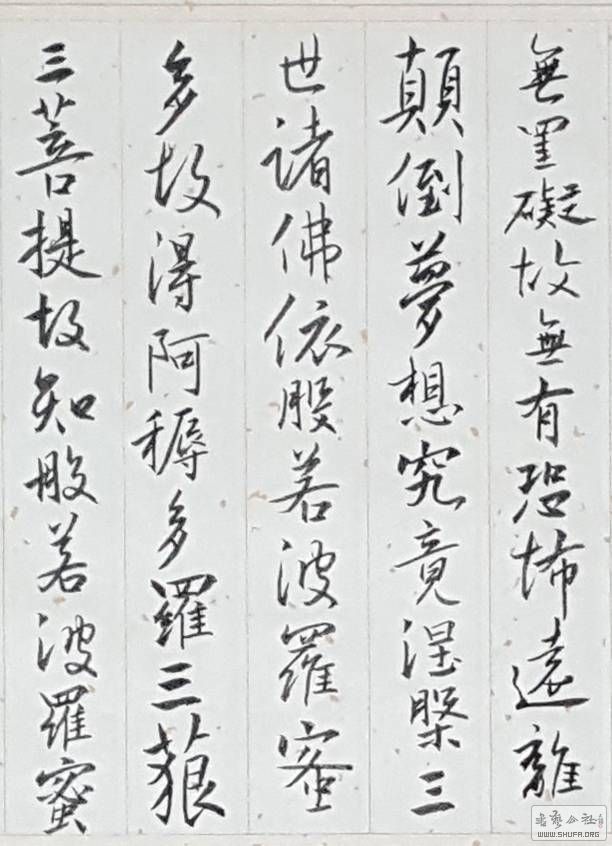 無罣礙故無有恐怖遠離
顛倒夢想究竟涅槃三
世諸佛依般若波羅蜜
多故得阿耨多羅三藐
三菩提故知般若波羅蜜
WWW.SHUFA.ORG